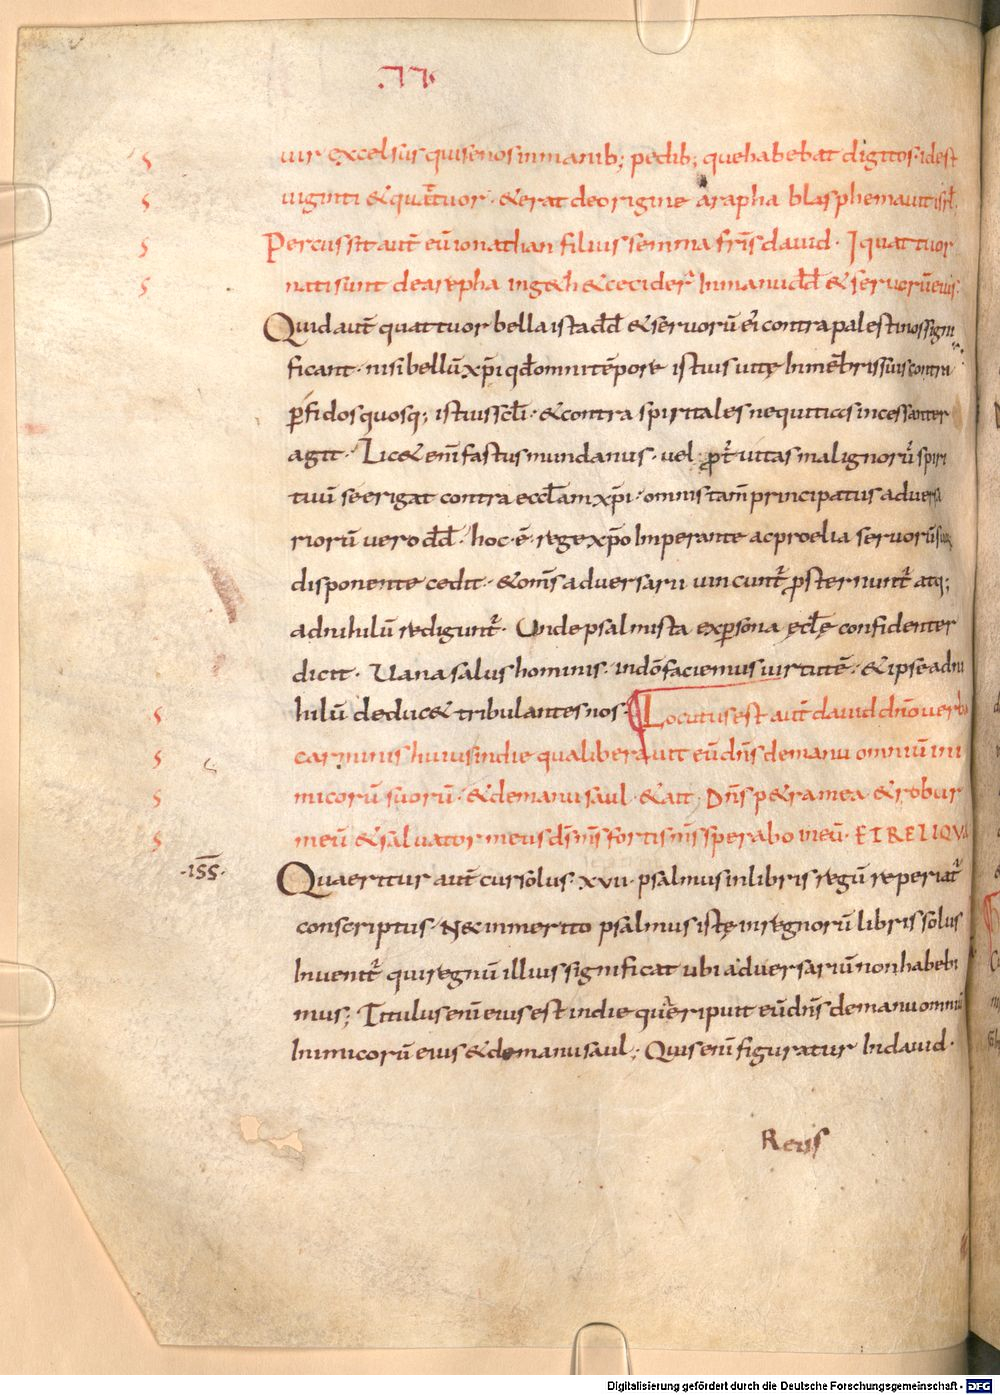 uir excelsus qui senos in manib; pedib; que habebat digitos · idest
uiginti & quattuor · & erat de origine arapha blasphemauit isrl.
Percussit aut̄ eū ionathan filius semma fr̄is dauid · I quattuor
nati sunt de arepha in geth & cecider̄ In manu dd̄ & seruorū eius.
Quid aut̄ quattuor bella ista dd̄ & seruorū ei contra palestinos signi
ficant · nisi bellū xp̄i qd̄ omni tēpore istius uitę In mēbris suis contra
ꝑfidos quosq; istius scłi · & contra spiritales nequitias incessanter
agit · Lic& enī fastus mundanus · uel ꝓt̄ uitas malignorū spiri
tuū se erigat contra eccłam xp̄i · omnis tam̄ principatus aduersa
riorū uero dd̄ · hoc · ē · rege xp̄o Imperante ac proelia seruorū suorū
disponente cedit · & om̄s aduersarii uincunt̄ ꝓsternunt̄ atq;
ad nihilū redigunt̄ · Unde psalmista ex ꝑsona ęcłę confidenter
dicit · Uana salus hominis · in dō faciemus uirtutē · & ipse ad ni
hilū deduc& tribulantes nos · Locutus est aut̄ dauid dn̄o uerba
carminis huius in die qua liberauit eū dn̄s de manu omniū ini
micorū suorū · & de manu saul · & ait · Dn̄s p&ra mea & robur
meū & saluator meus ds̄ m̄s fortis m̄s sperabo in eū · ET RELIQVA
·iss̄·
Quaeritur aut̄ cur solus · xvii · psalmus in libris regū reperiat̄
conscriptus · N& inmerito psalmus iste in regnorū libris solus
Inuenit̄ qui regnū illius significat ubi aduersariū non habebi
mus; Titulus enī eius est in die qua eripuit eū dn̄s de manu omniū
Inimicorū eius & de manu saul; Quis enī figuratur In dauid ·
Reuis
Digitalisierung gefördert durch die Deutsche Forschungsgemeinschaft - DFG